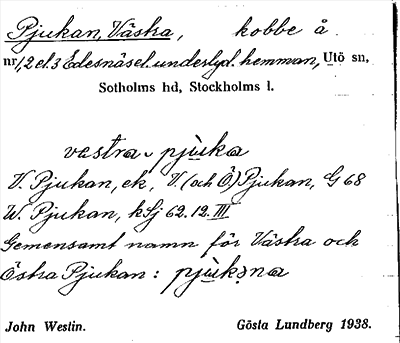 Pjukan, Västra, kobbe å
nr 1, 2 el. 3 Edesnäs el. underlyd. hemman, Utö sn,
Sotholms hd, Stockholms l.
västra pjùka
V. Pjukan, ek, V. (och Ö) Pjukan, G 68
W. Pjukan, kSj 62.12.III
Gemensamt namn för Västra och
Östra Pjukan: pjùkəna
John Westin. Gösta Lundberg 1938.